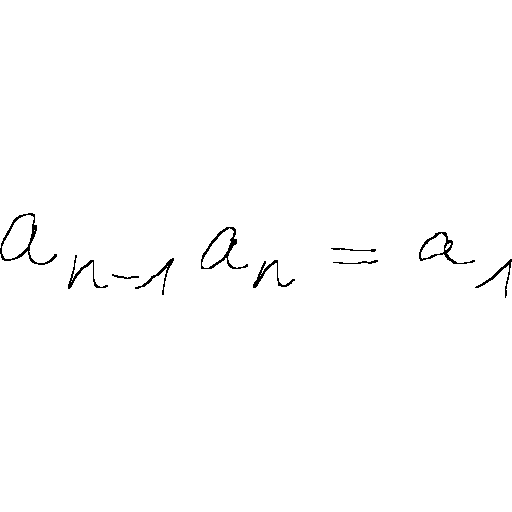 a_{n-1} a_n = a_1